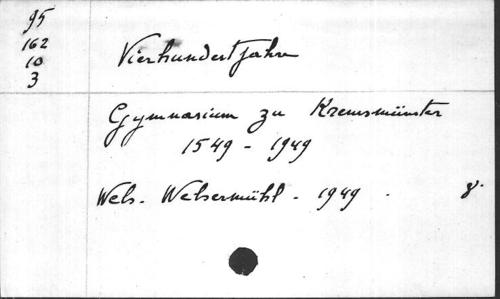 95
162
10
3
Vierhundert Jahre
Gymnasium zu Kremsmünster
1549 - 1949
Wels. Welsermühl. 1949. 8.